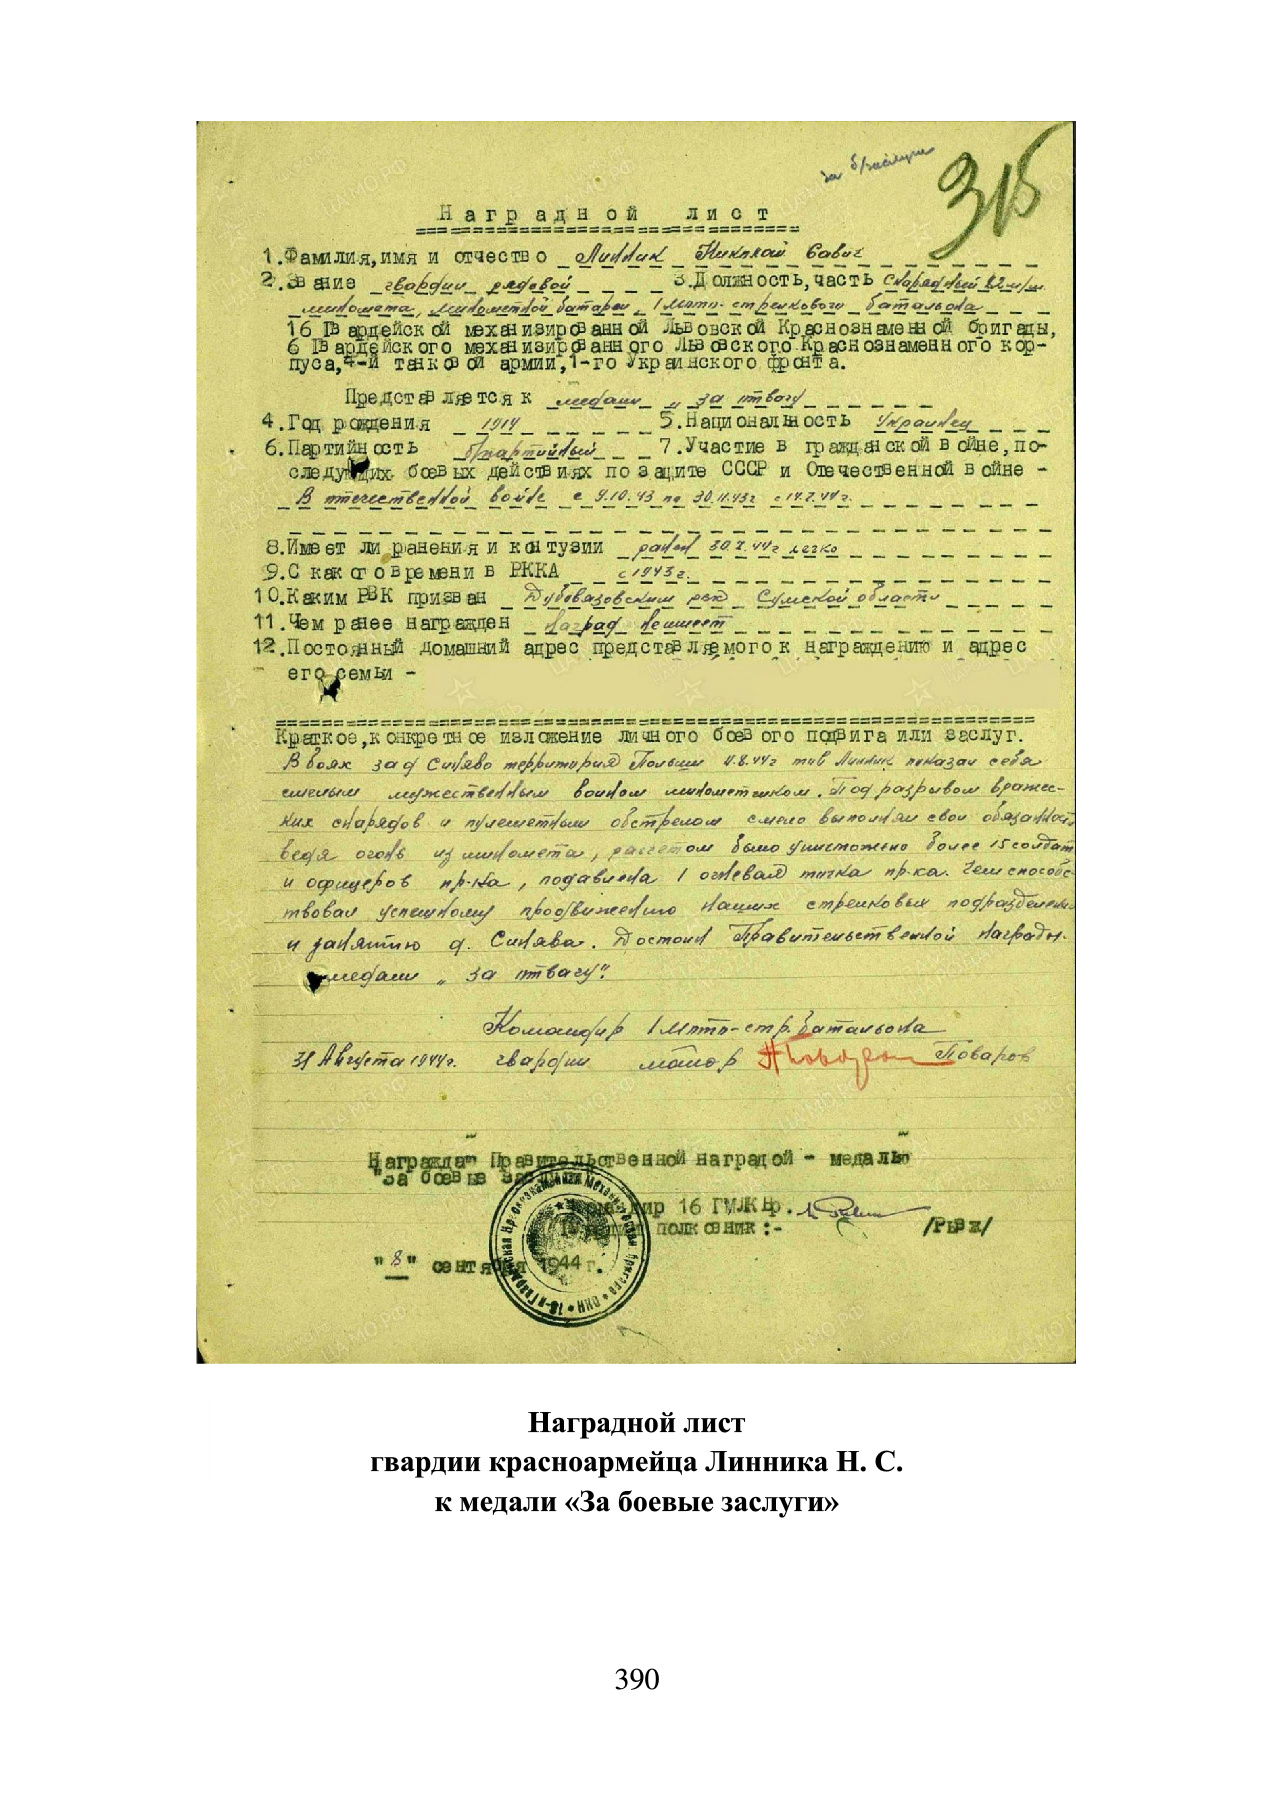 за б/заслуги
315
Наградной лист
1.Фамилия,имя и отчество Линник Николай Савич
2.Звание гвардии рядовой 3.Должность,часть Снарядный 82 м/м.
миномета, минометной батареи, 1 мото-стрелкового батальона
16 Гвардейской механизированной Львовской Краснознаменной бригады,
6 Гвардейского механизированного Львовского Краснознаменного кор-
пуса,4-й танковой армии,1-го Украинского фронта.
Представляется к медали „за отвагу
4.Год рождения 1914 5.Национальность Украинец
6.Партийность б/партийный 7.Участие в гражданской войне,по-
следующих боевых действиях по защите СССР и Отечественной войне -
В отечественной войне с 9.10.43 по 30.11.43г с 14.7.44г.
8.Имеет ли ранения и контузии ранен 30.7.44г легко
9.С какого времени в РККА с 1943г.
10.Каким РВК призван Дубовязовским рвк Сумской области
11.Чем ранее награжден наград не имеет
12.Постоянный домашний адрес представляемого к награждению и адрес
его семьи -
Краткое,конкретное изложение личного боевого подвига или заслуг.
В боях за д Синяво территория Польши 4.8.44г тов Линник показал себя
смелым мужественным воином минометчиком. Под разрывом вражес-
ких снарядов и пулеметным обстрелом смело выполнял свои обязанност
ведя огонь из миномета, расчетом было уничтожено более 15 солдат
и офицеров пр-ка, подавлена 1 огневая точка пр-ка. Чем способс-
твовал успешному продвижению наших стрелковых подразделени
и занятию д. Синява. Достоин Правительственной награды-
медали „за отвагу".
Командир 1 мото-стр. батальона
31 Августа 1944г. гвардии майор Поваров
Награждат Правительственной наградой - медалью
"За боевые заслуги"
Командир 16 ГМЛКБр.
Гвардии полковник:- /Рывж/
"8" сентября 1944 г.
Наградной лист
гвардии красноармейца Линника Н. С.
к медали «За боевые заслуги»
390